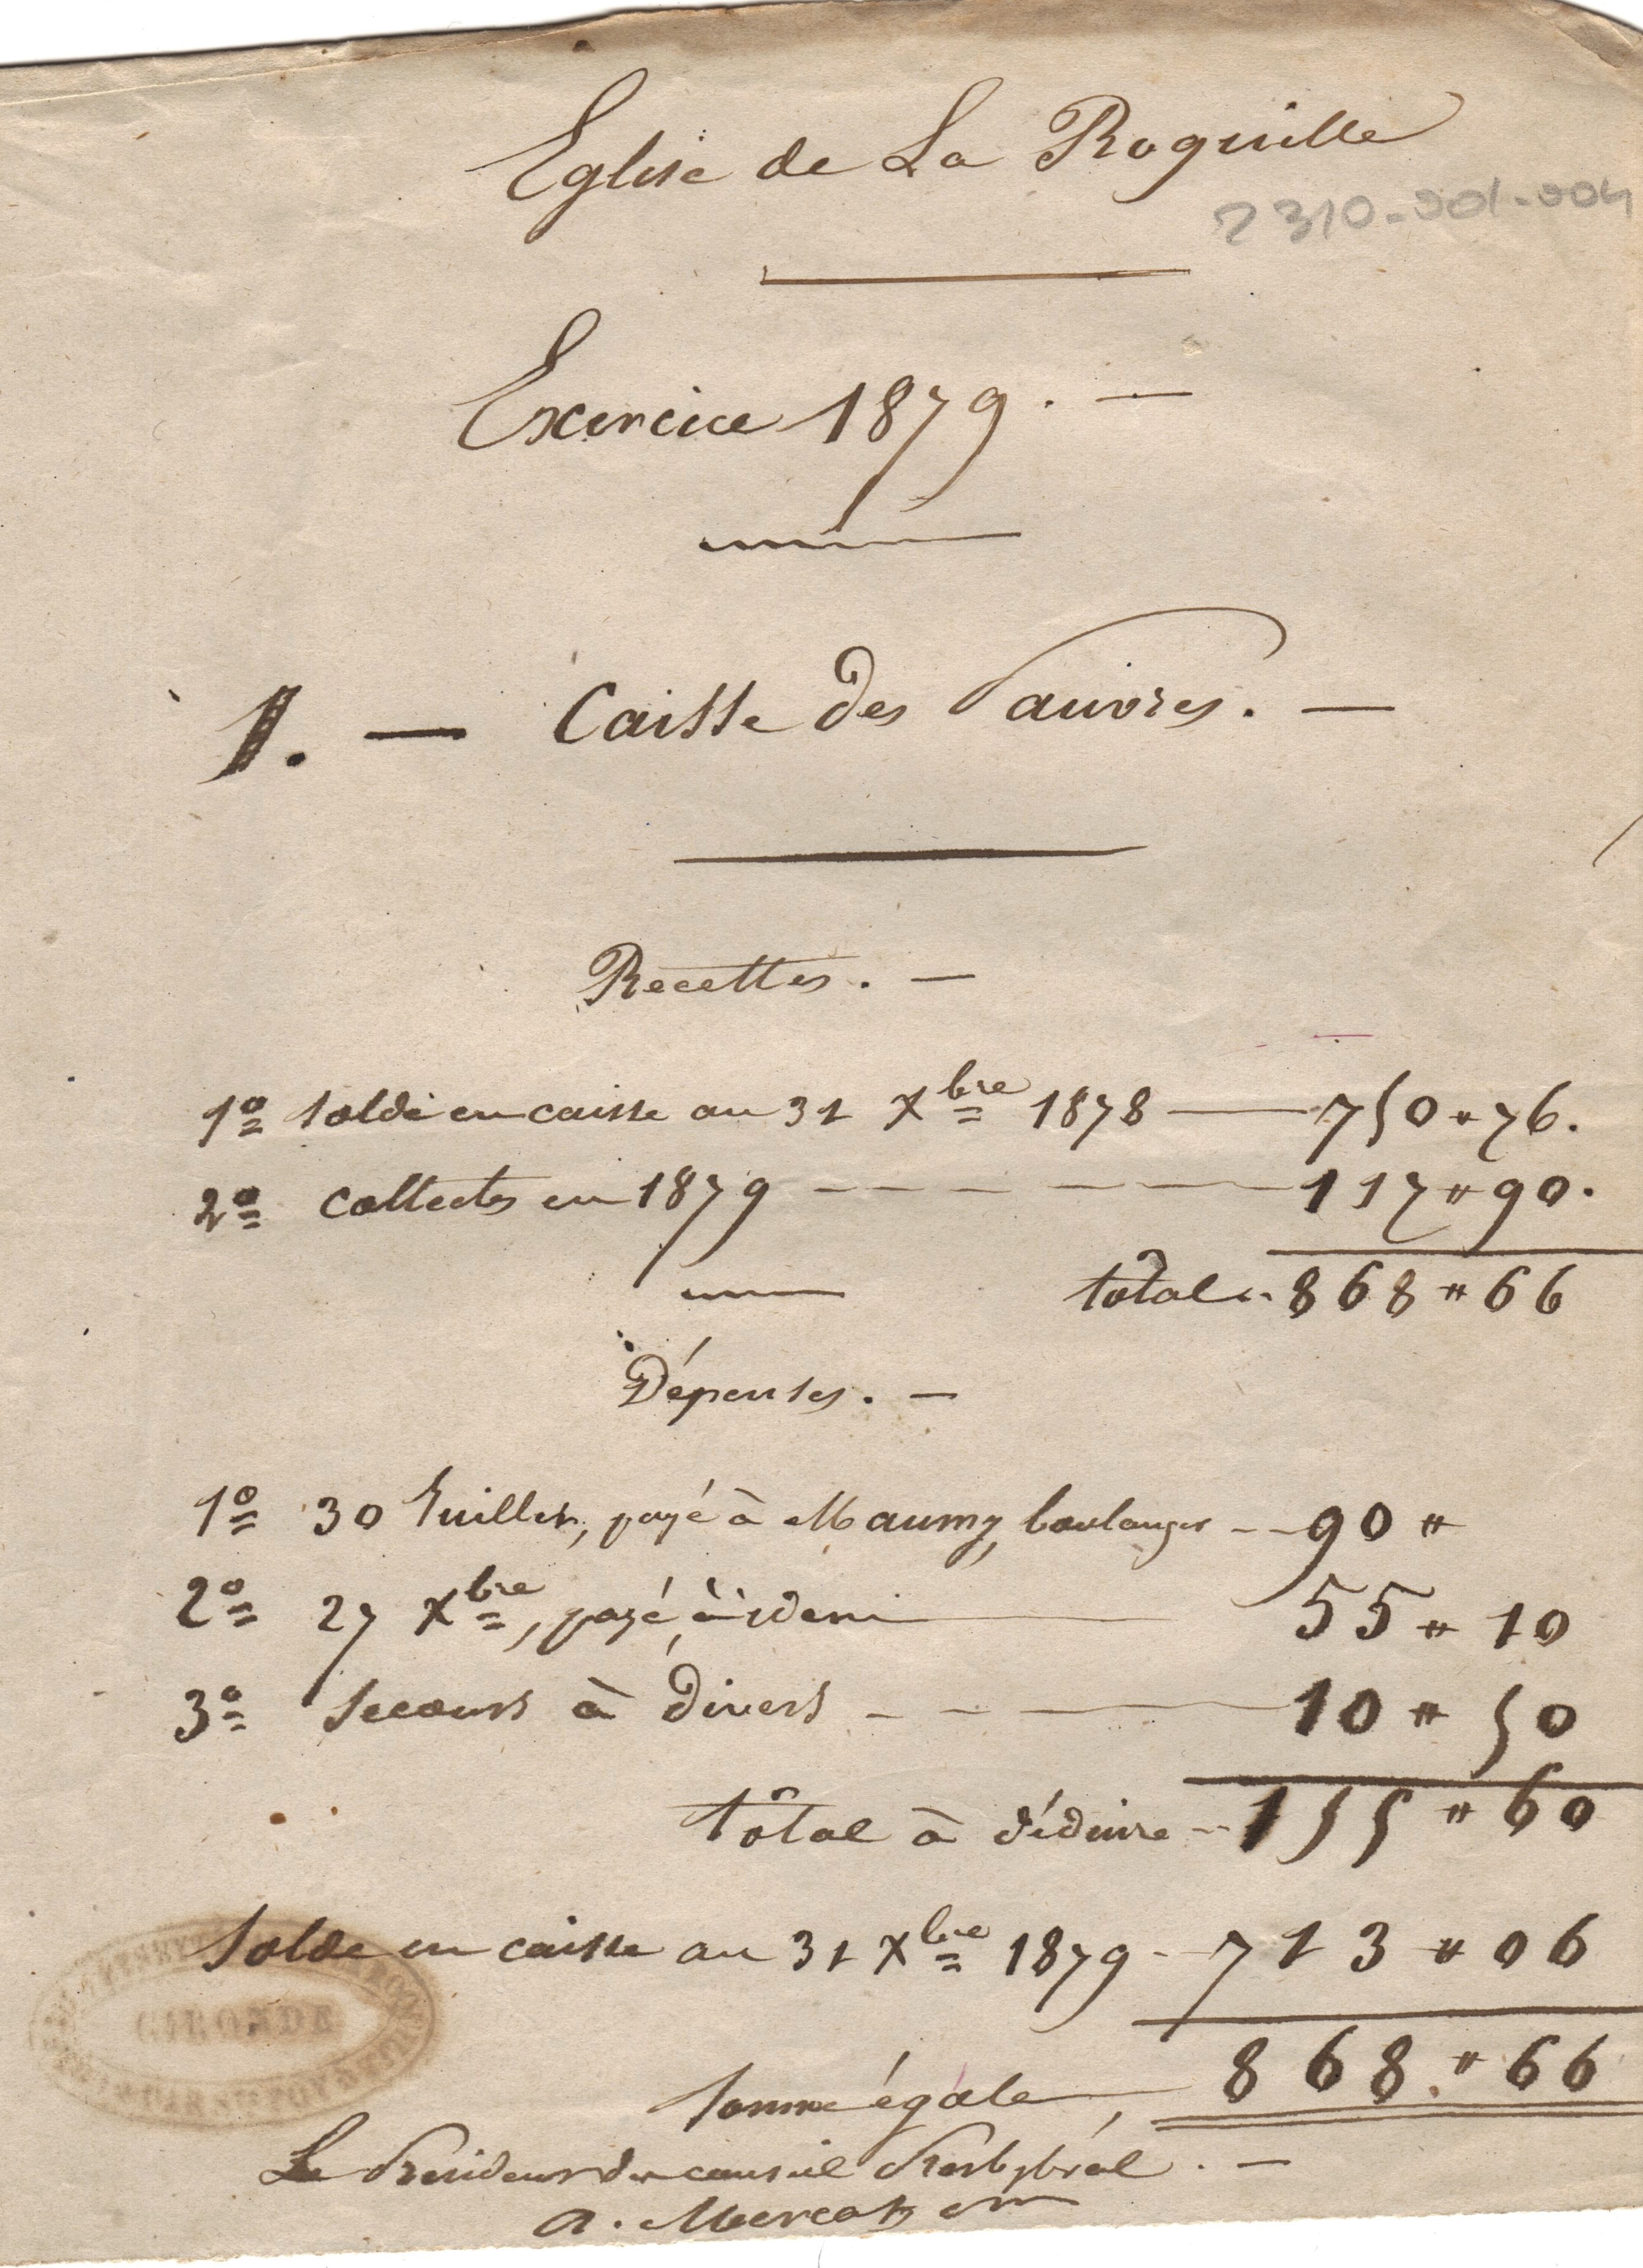 Eglise de La Roquille
2310-001-004
Exercice 1879. —
1. — Caisse des Pauvres. —
Recettes. —
1º solde en caisse au 31 Xbre 1878 — 750 " 76.
2º Collectes en 1879 - - - - - 117 " 90.
total - 868 " 66
Dépenses. —
1º 30 Juillet, payé à Maumy, boulanger - - 90 "
2º 27 Xbre, payé à idem — 55 " 10
3º Secours à divers - - - 10 " 50
total à déduire - 155 " 60
Solde en caisse au 31 Xbre 1879 - 713 " 06
Somme égale, 868 " 66
GIRONDE
Le Président du conseil Presbytéral. —
A. Mercat